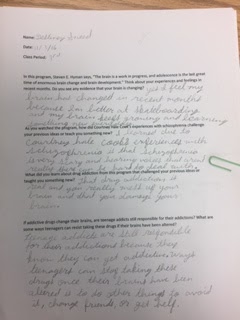 Name:
Date: 11/16
Class Period: 4th
In this program, Steven E. Hyman says, "The brain is a work in progress, and adolescence is the last great
state of enormous brain change and brain development." Think about your experiences and feelings in
recent months. Do you see any evidence that your brain is changing? yes I feel my
brain has changed in recent months
because I'm better at skateboarding
and my brain kept growing and learning
As you watched the program, how did Courtney Hale Cook's experiences with schizophrenia challenge
your previous ideas or teach you something new? I learned due to
Courtney Hale Cook's experiences with
schizophrenia is that schizophrenia
is very scary and hearing voices that aren't
really there is hard to deal with
What did you learn about drug addiction from this program that challenged your previous ideas or
taught you something new? that drug addiction is
real and you really mess up your
brain and that you damage your
brain
If addictive drugs change their brains, are teenage addicts still responsible for their addictions? What are
some ways teenagers can resist taking these drugs once their brains have been altered?
Teenage addicts are still responsible
for their addictions because they
know they can get addictive. Ways
teenagers can stop taking these
drugs once their brains have been
altered is to do other things to avoid
it, change friends, or get help.